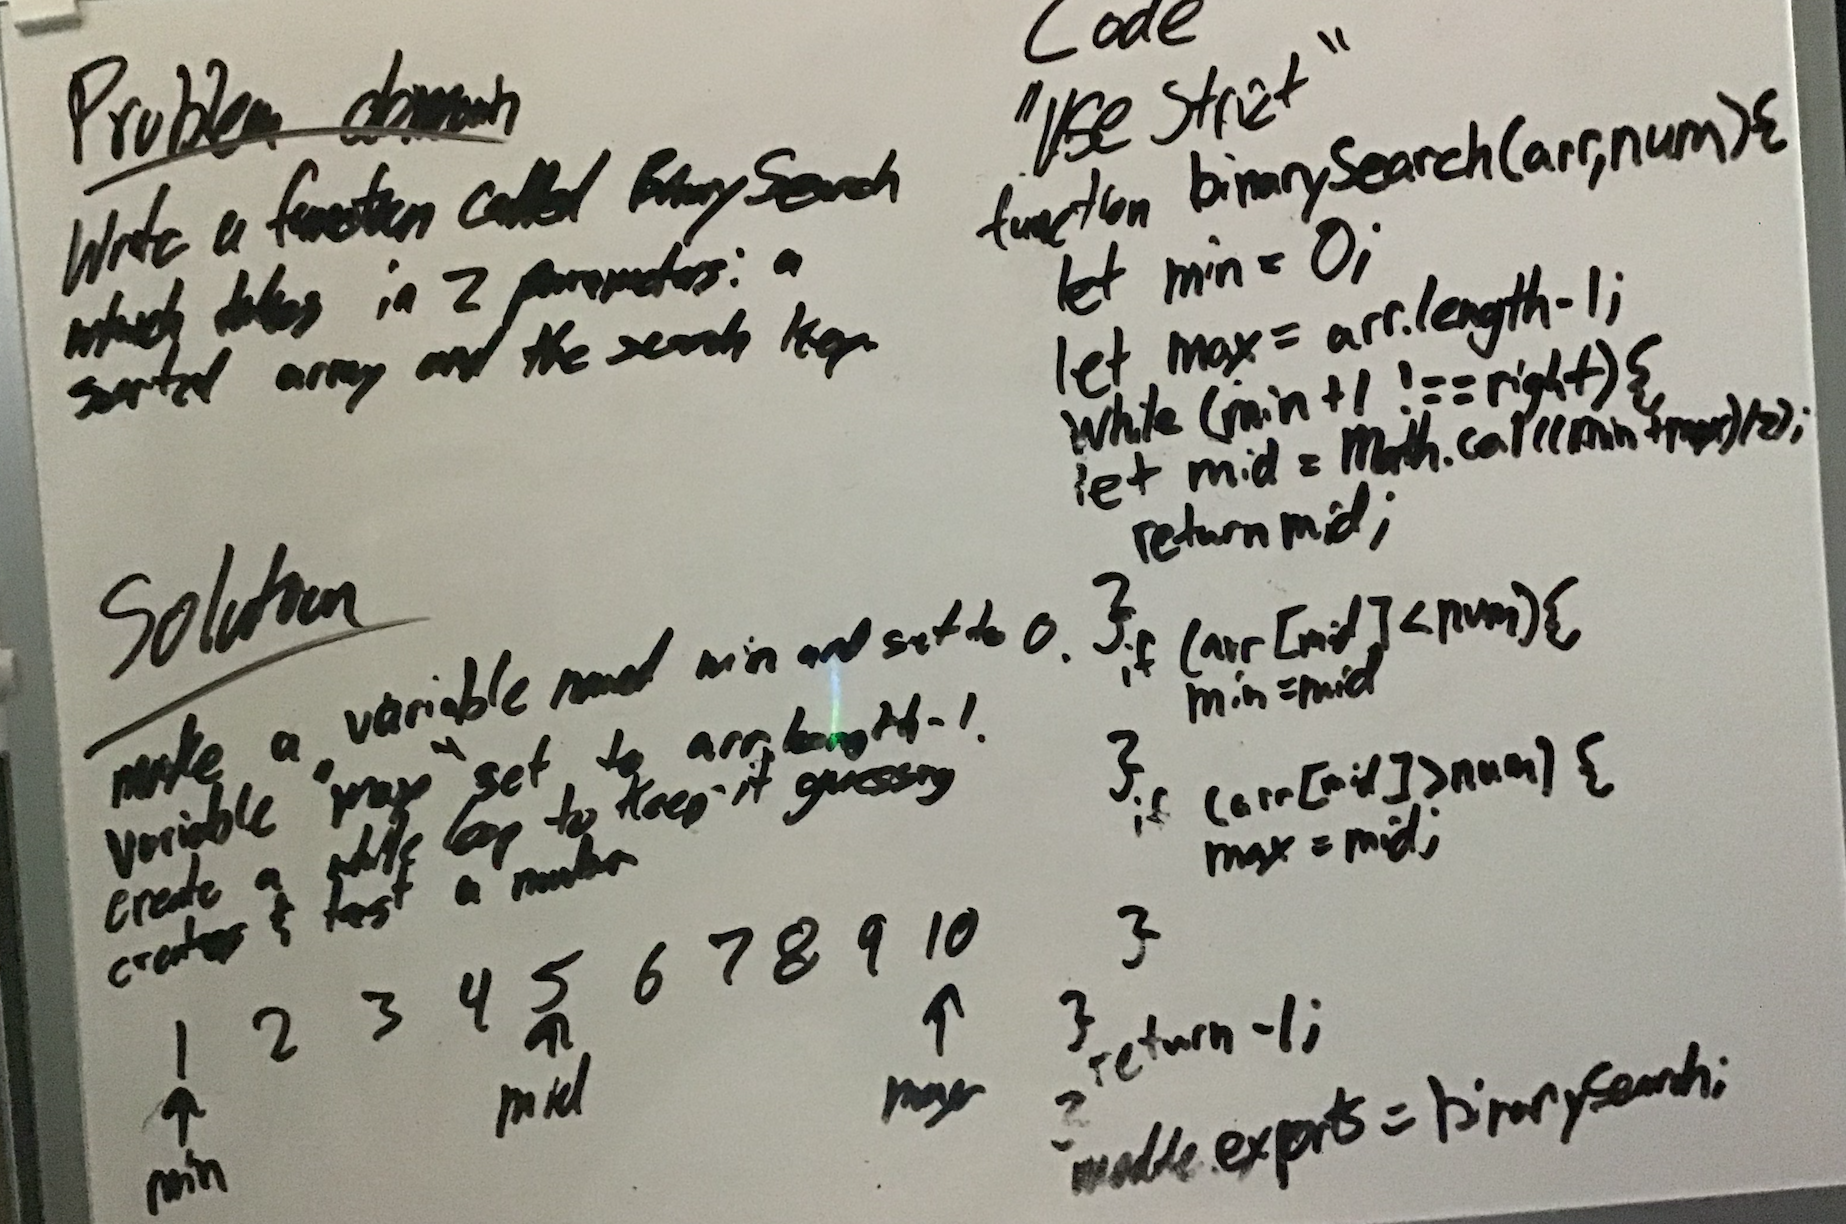 Problem domain
Write a function called BinarySearch
which takes in 2 parameters: a
sorted array and the search key.
Solution
make a variable named min and set to 0.
variable "max" set to arr.length-1.
create a while loop to keep it guessing
creates & test a number
1 2 3 4 5 6 7 8 9 10
min mid max
Code
"Use Strict"
function binarySearch(arr,num){
let min = 0;
let max = arr.length-1;
while (min +1 !== right){
let mid = Math.cail((min + max)/2);
return mid;
}
if (arr[mid] < num){
min = mid
}
if (arr[mid] > num) {
max = mid;
}
}
return -1;
}
module.exports = binarySearch;